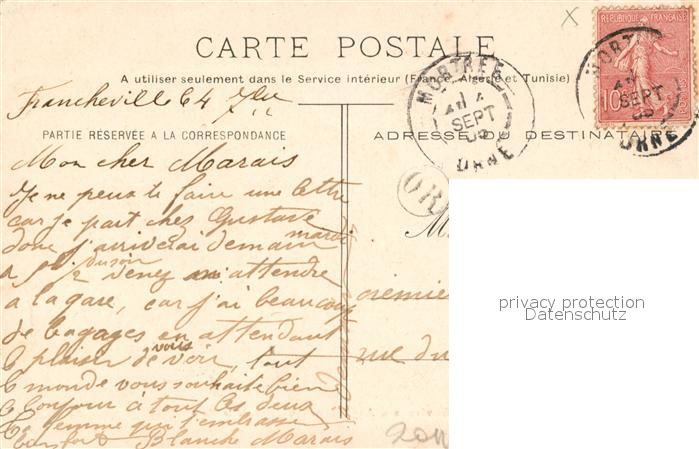 CARTE POSTALE
A utiliser seulement dans le Service intérieur (France, Algérie et Tunisie)
RÉPUBLIQUE FRANÇAISE
10
MORTRÉE
SEPT
05
ORNE
MORTRÉE
SEPT
05
ORNE
Francheville le 4 7bre
PARTIE RÉSERVÉE A LA CORRESPONDANCE
ADRESSE DU DESTINATAIRE
Mon cher Marais
Je ne peux te faire une lettre
car je part chez Gustave
donc j'arriverai demain mardi
a du soir venez m'attendre
a la gare, car j'ai beaucoup
de bagages en attendant
le plaisir de vous voir, tout
le monde vous souhaite bien
le bonjour à tout les deux
Ta femme qui t'embrasse
bien fort Blanche Marais
OR
M
remie
rue du
privacy protection
Datenschutz